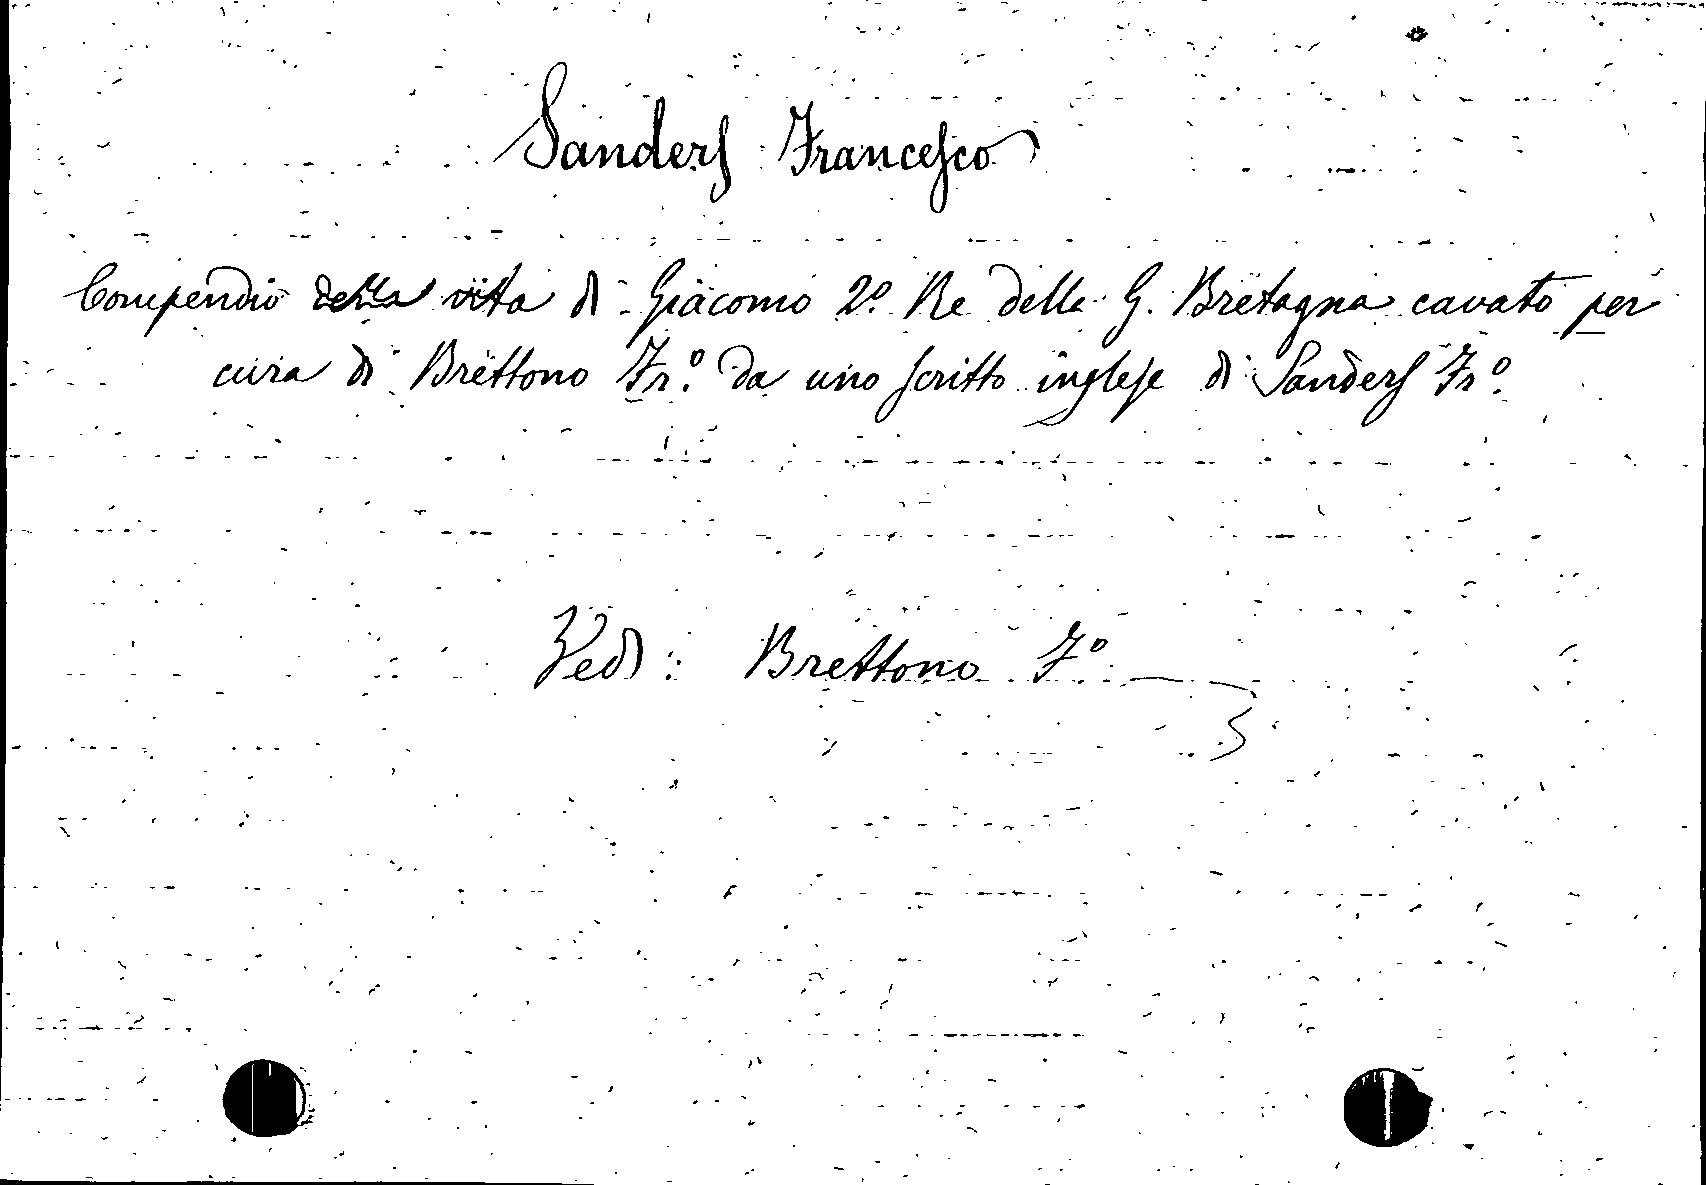 Sanders Francesco
Compendio della vita di Giacomo 2º Re della G. Bretagna cavato per
cura di Brettono Frº. da uno scritto inglese di Sanders Frº.
Vedi: Brettono Fº